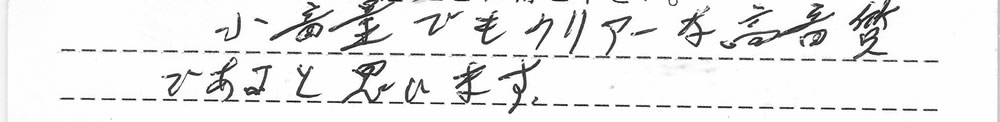 小音量でもクリアーな高音質
であると思います。